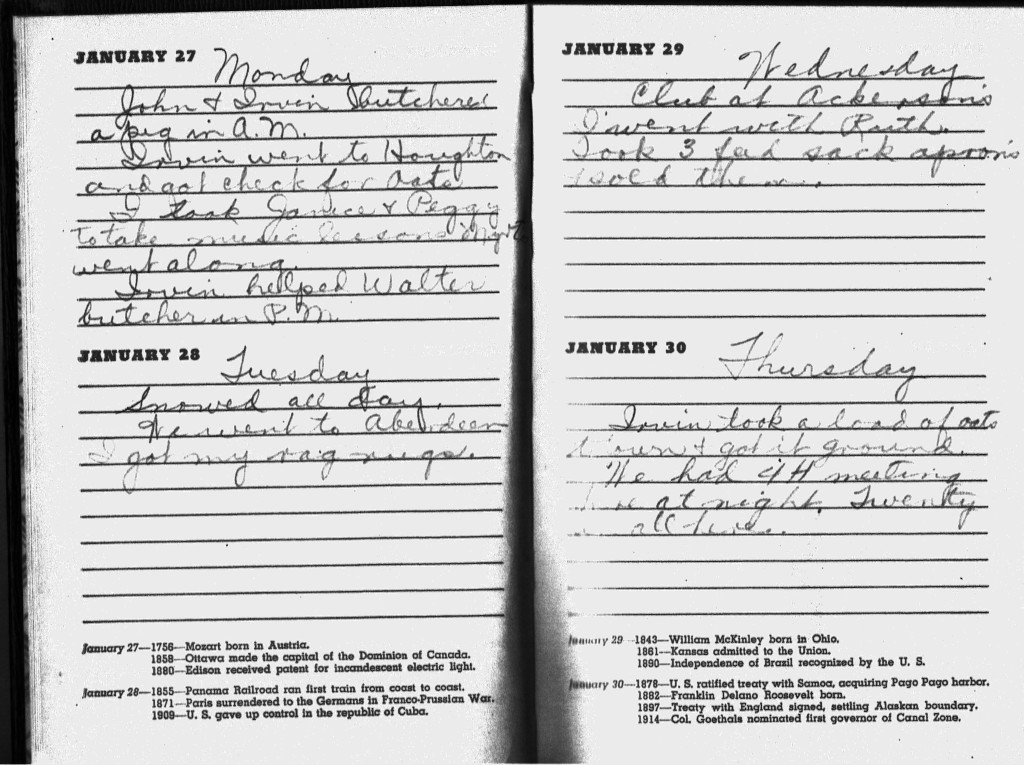 JANUARY 27
Monday
John & Irvin butchered
a pig in A.M.
Irvin went to Houghton
and got check for oats
I took Janice & Peggy
to take music lessons Myrt
went along.
Irvin helped Walter
butcher in P.M.
JANUARY 28
Tuesday
Snowed all day.
We went to Aberdeen
I got my rag rugs.
January 27—1756—Mozart born in Austria.
1858—Ottawa made the capital of the Dominion of Canada.
1880—Edison received patent for incandescent electric light.
January 28—1855—Panama Railroad ran first train from coast to coast.
1871—Paris surrendered to the Germans in Franco-Prussian War.
1909—U. S. gave up control in the republic of Cuba.
JANUARY 29
Wednesday
Club at Ackerson's
I went with Ruth.
Took 3 fed sack aprons
sold them.
JANUARY 30
Thursday
Irvin took a load of oats
down & got it ground.
We had 4H meeting
at night. Twenty
all here.
January 29—1843—William McKinley born in Ohio.
1861—Kansas admitted to the Union.
1890—Independence of Brazil recognized by the U. S.
January 30—1878—U. S. ratified treaty with Samoa, acquiring Pago Pago harbor.
1882—Franklin Delano Roosevelt born.
1897—Treaty with England signed, settling Alaskan boundary.
1914—Col. Goethals nominated first governor of Canal Zone.